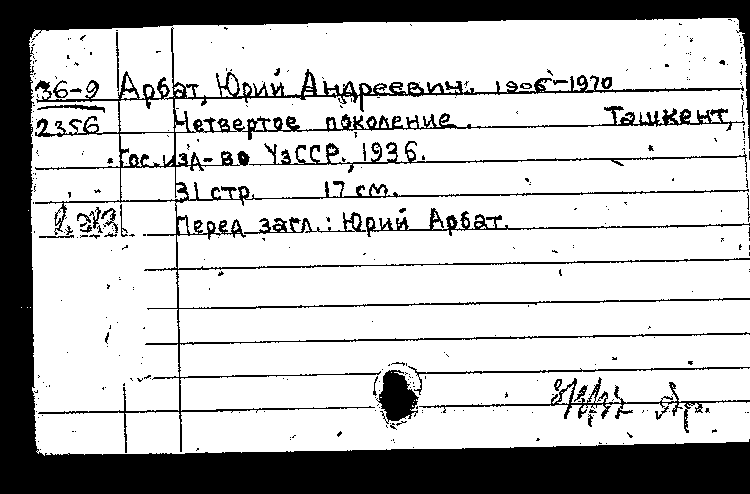 36-9 Арбат, Юрий Андреевич. 1905-1970
2356 Четвертое поколение. Ташкент,
Гос. изд-во УзССР., 1936.
31 стр. 17 см.
2 экз. Перед загл.: Юрий Арбат.